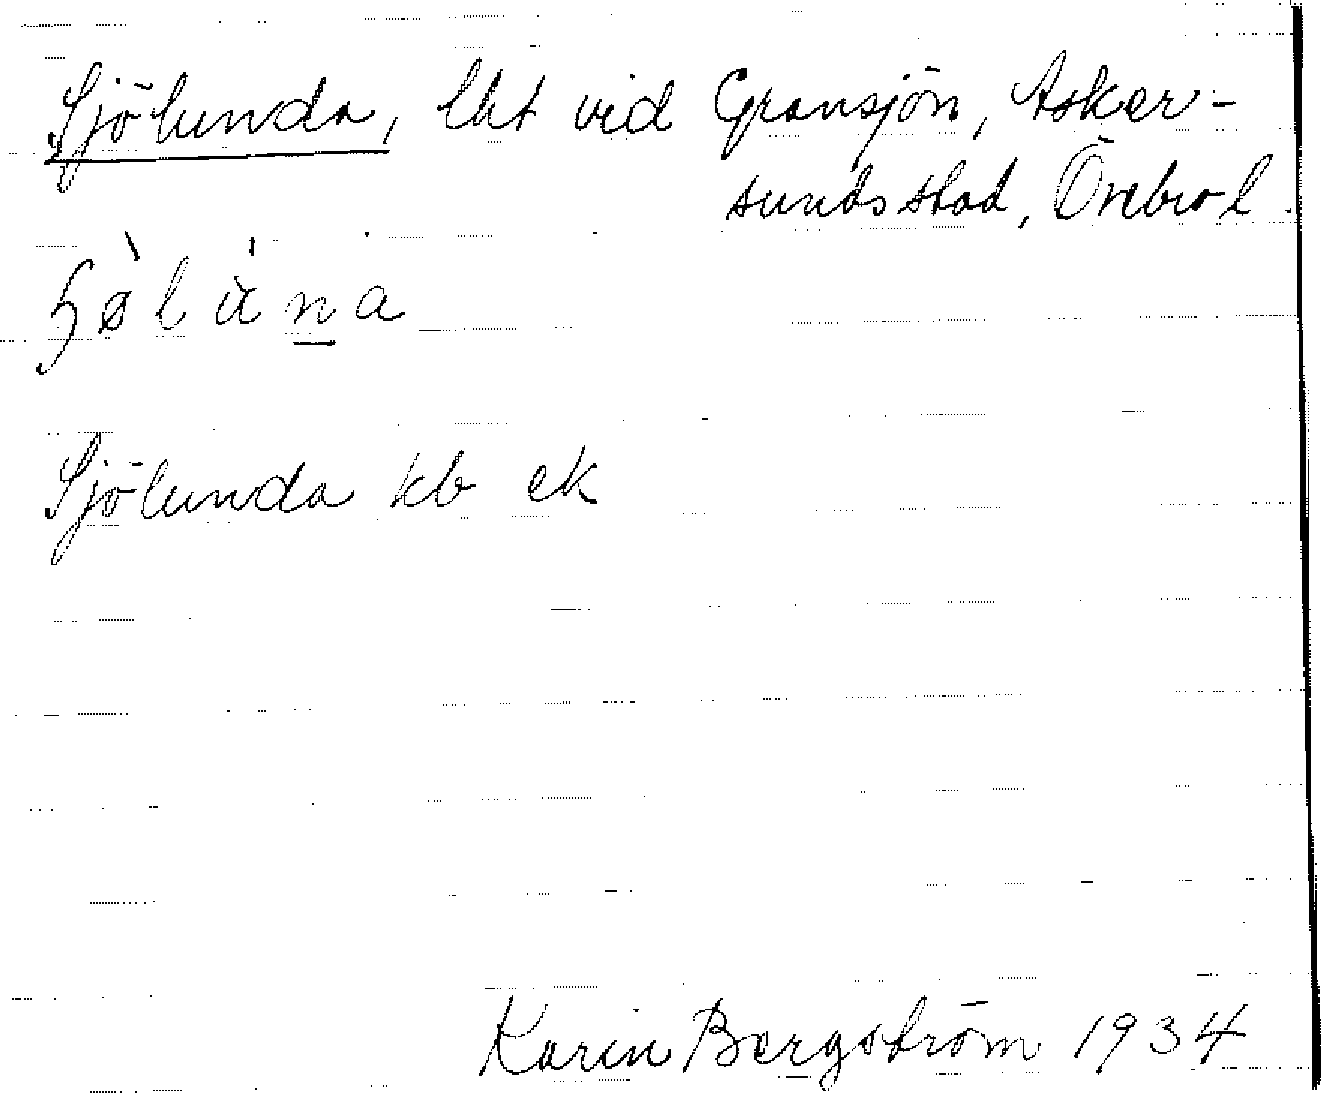 Sjölunda, lht vid Gransjön, Asker-
sunds stad, Örebro l.
Sjölunda kb ek
Karin Bergström 1934